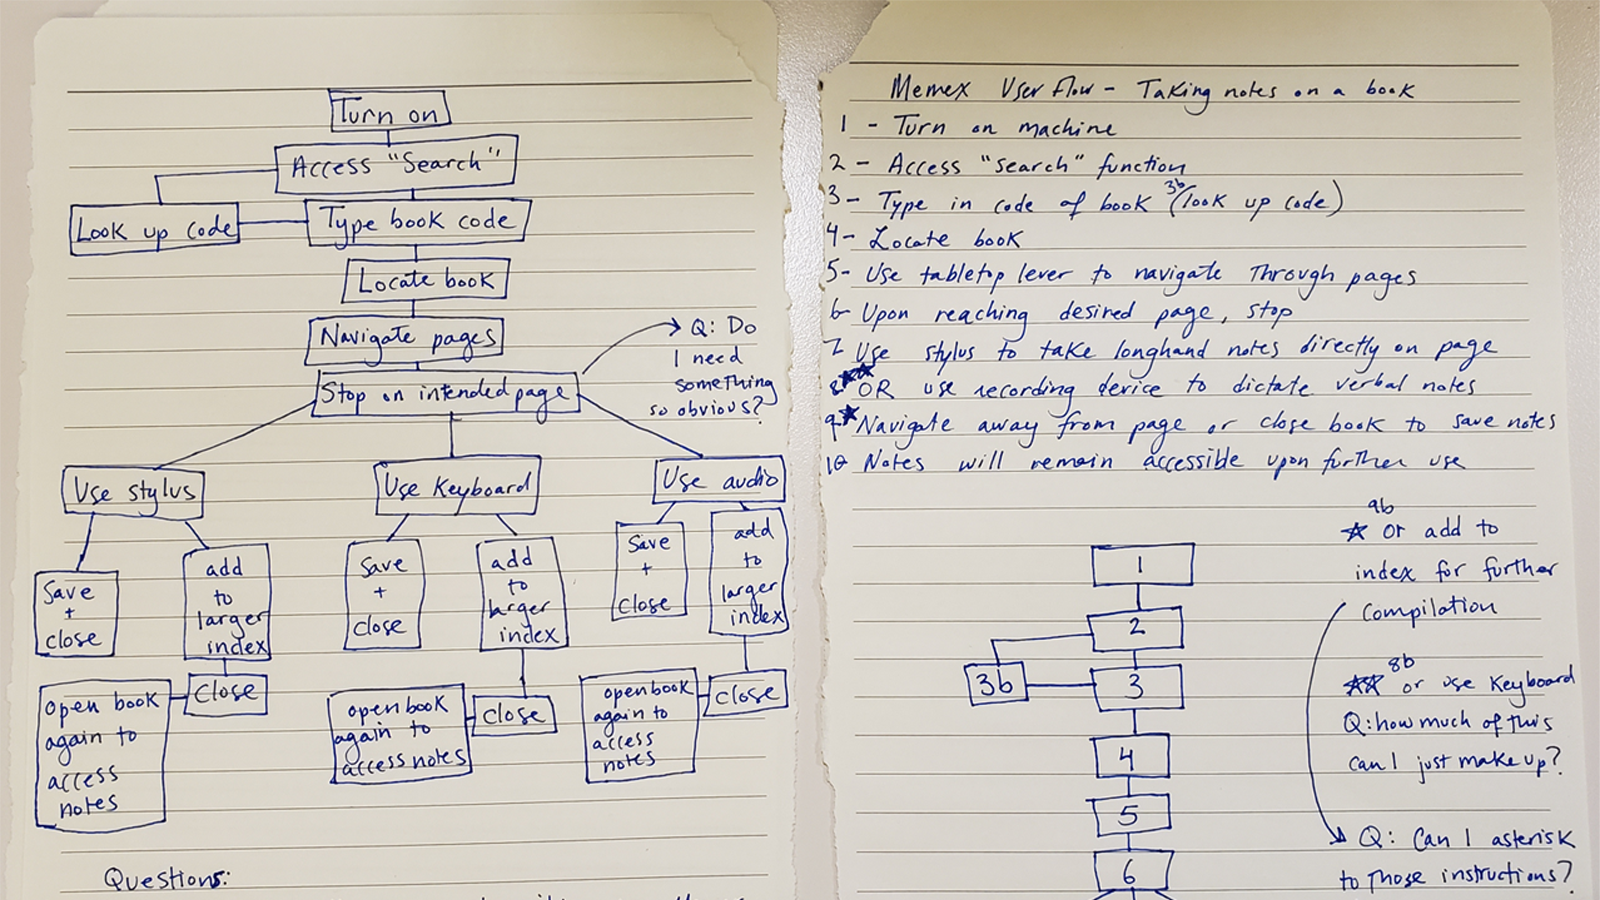 Turn on
Access "Search"
Look up code
Type book code
Locate book
Navigate pages
Stop on intended page
Q: Do
I need
something
so obvious?
Use stylus
Use Keyboard
Use audio
Save
+
close
add
to
larger
index
Save
+
close
add
to
larger
index
Save
+
close
add
to
larger
index
open book
again to
access
notes
close
open book
again to
access notes
close
open book
again to
access
notes
close
Questions:
Memex User flow - Taking notes on a book
1 - Turn on machine
2 - Access "search" function
3 - Type in code of book 3b (look up code)
4 - Locate book
5 - Use tabletop lever to navigate through pages
6 - Upon reaching desired page, stop
7 Use stylus to take longhand notes directly on page
8 ★★ OR use recording device to dictate verbal notes
9 ★ Navigate away from page or close book to save notes
10 Notes will remain accessible upon further use
9b
★ or add to
index for further
compilation
8b
★★ or use Keyboard
Q: how much of this
can I just make up?
Q: Can I asterisk
to those instructions?
1
2
3b
3
4
5
6